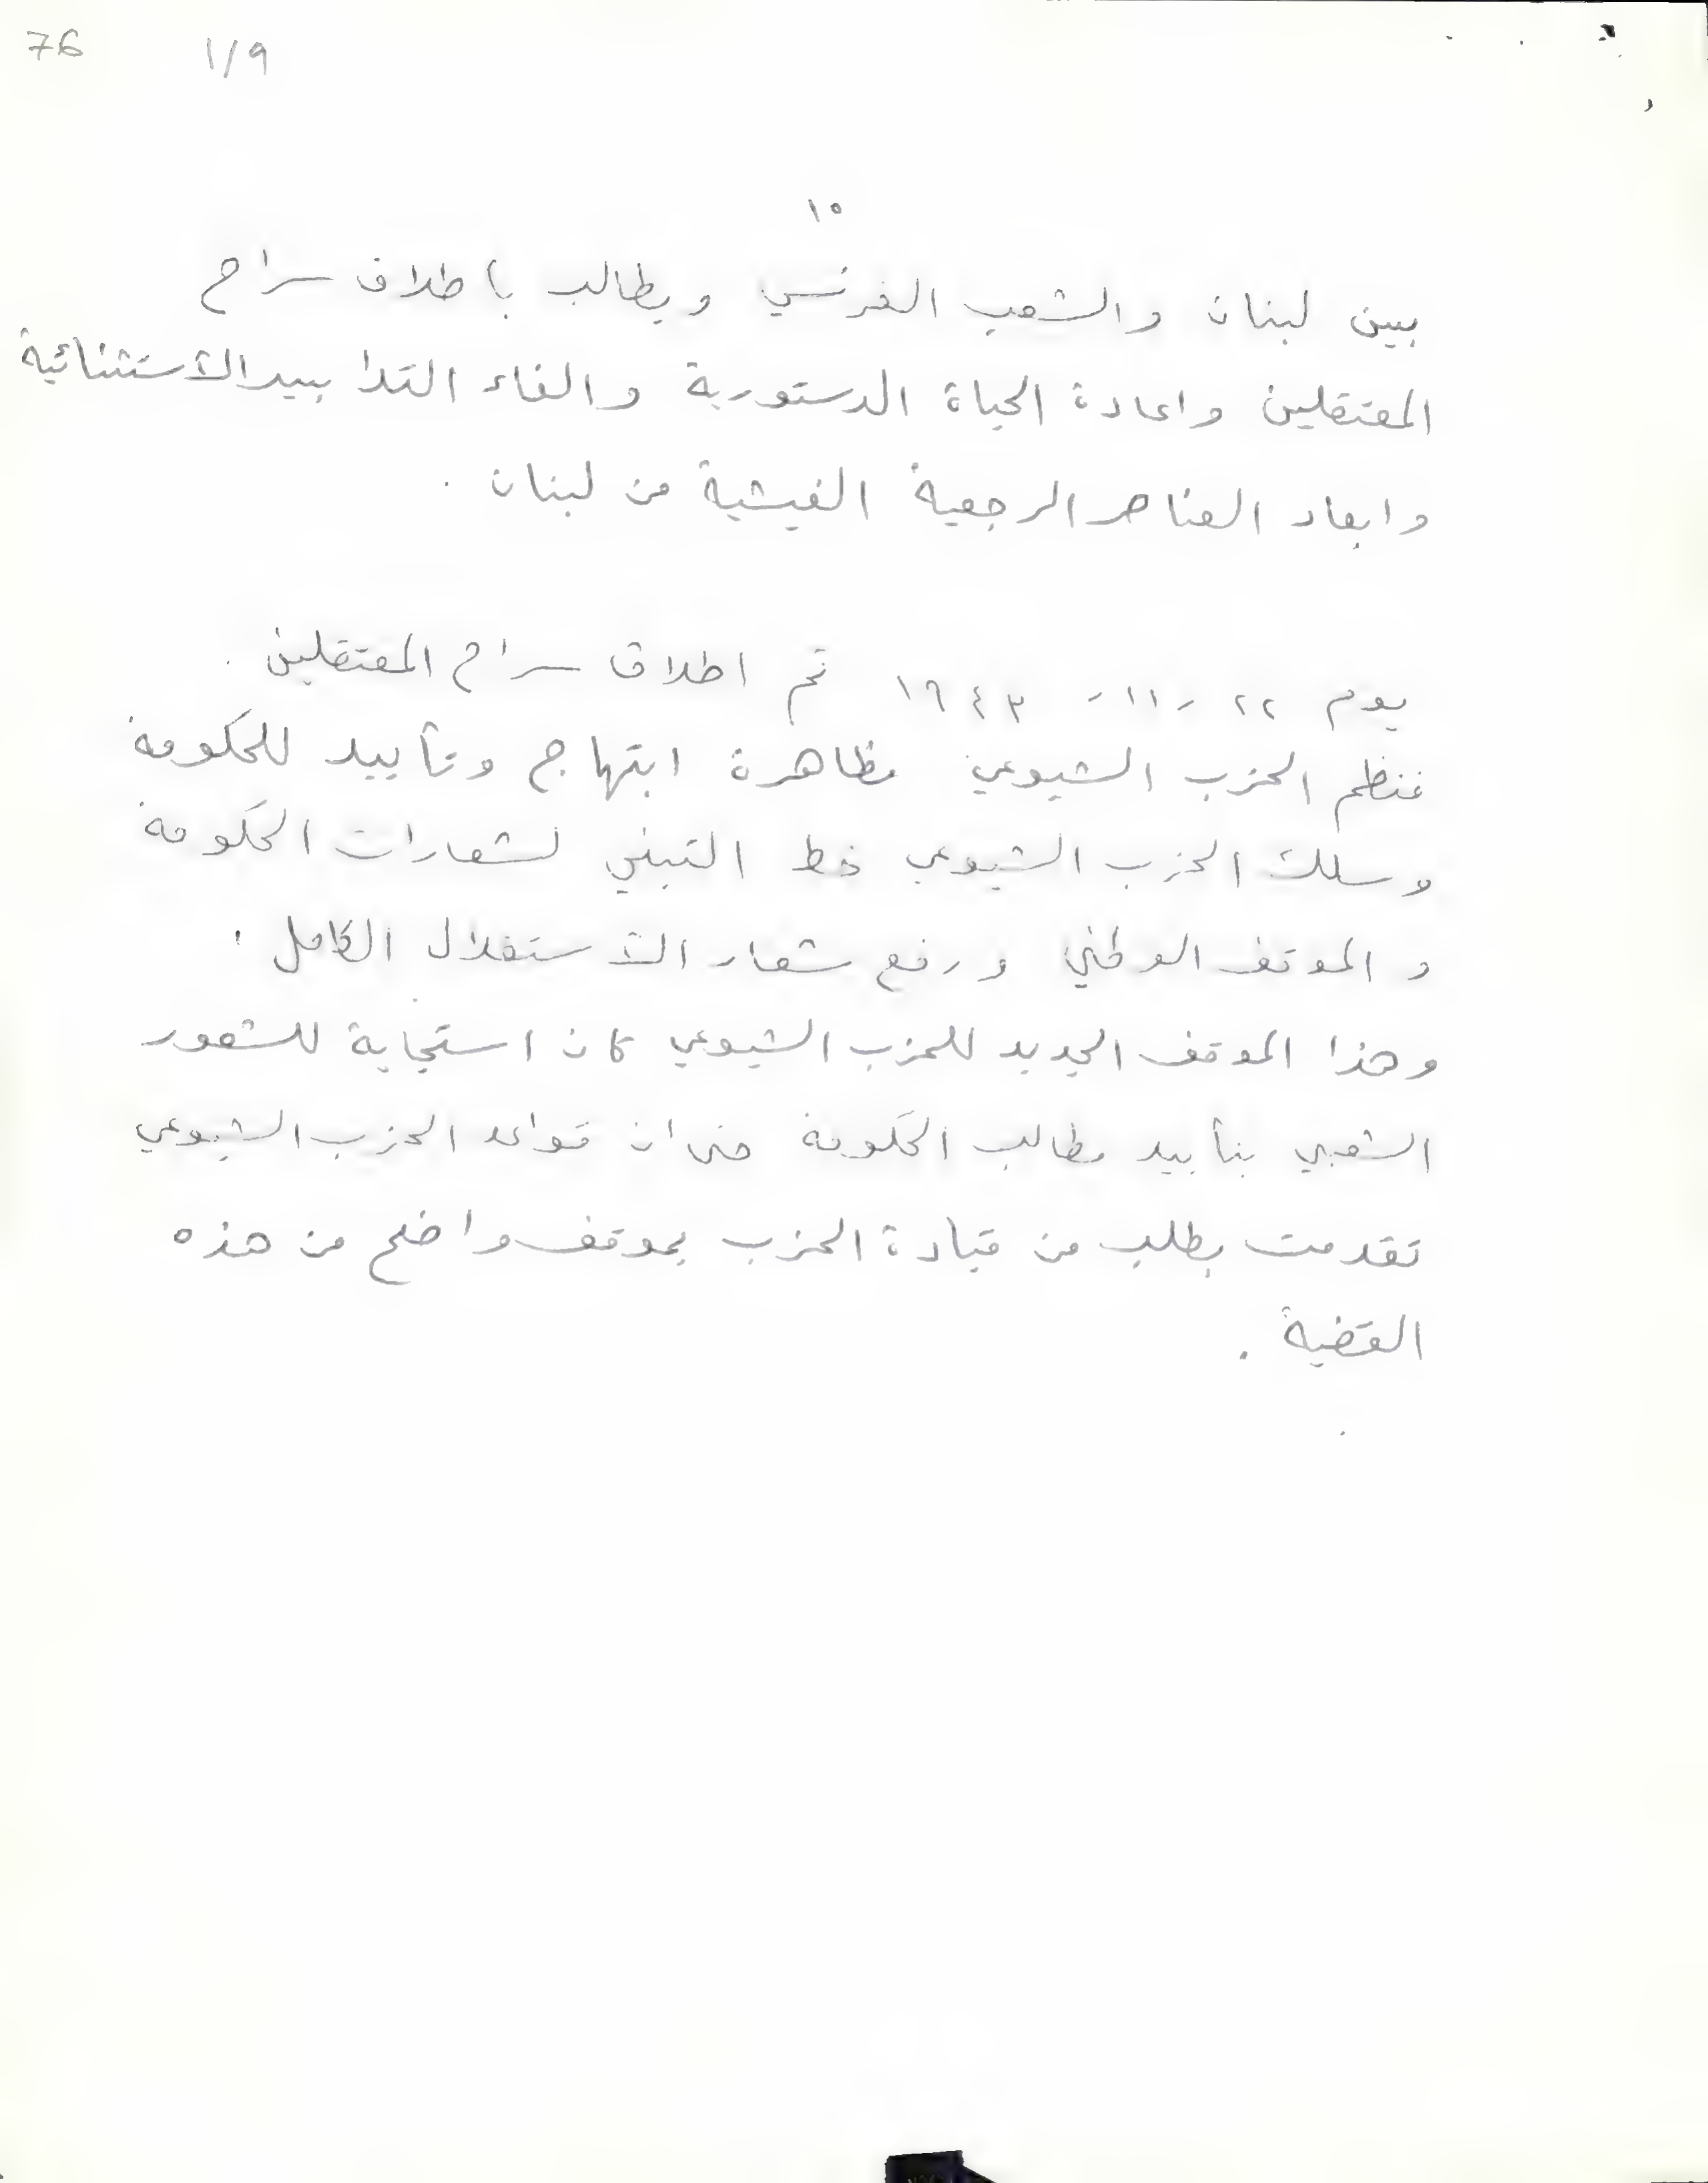 76
١/٩
١٥
بين لبنان والشعب الفرنسي ويطالب باطلاق سراح
المعتقلين واعادة الحياة الدستورية والغاء التدابير الاستثنائية
وابعاد العناصر الرجعية الفيشية من لبنان .
يوم ٢٢ - ١١ - ١٩٤٣ تم اطلاق سراح المعتقلين .
فنظم الحزب الشيوعي مظاهرة ابتهاج وتأييد للحكومة
وسلك الحزب الشيوعي خط التبني لشعارات الحكومة
و الموقف الوطني ورفع شعار الاستقلال الكامل .
وهذا الموقف الجديد للحزب الشيوعي كان استجابة للشعور
الشعبي بتأييد مطالب الحكومة حتى ان قواعد الحزب الشيوعي
تقدمت بطلب من قيادة الحزب بموقف واضح من هذه
القضية .